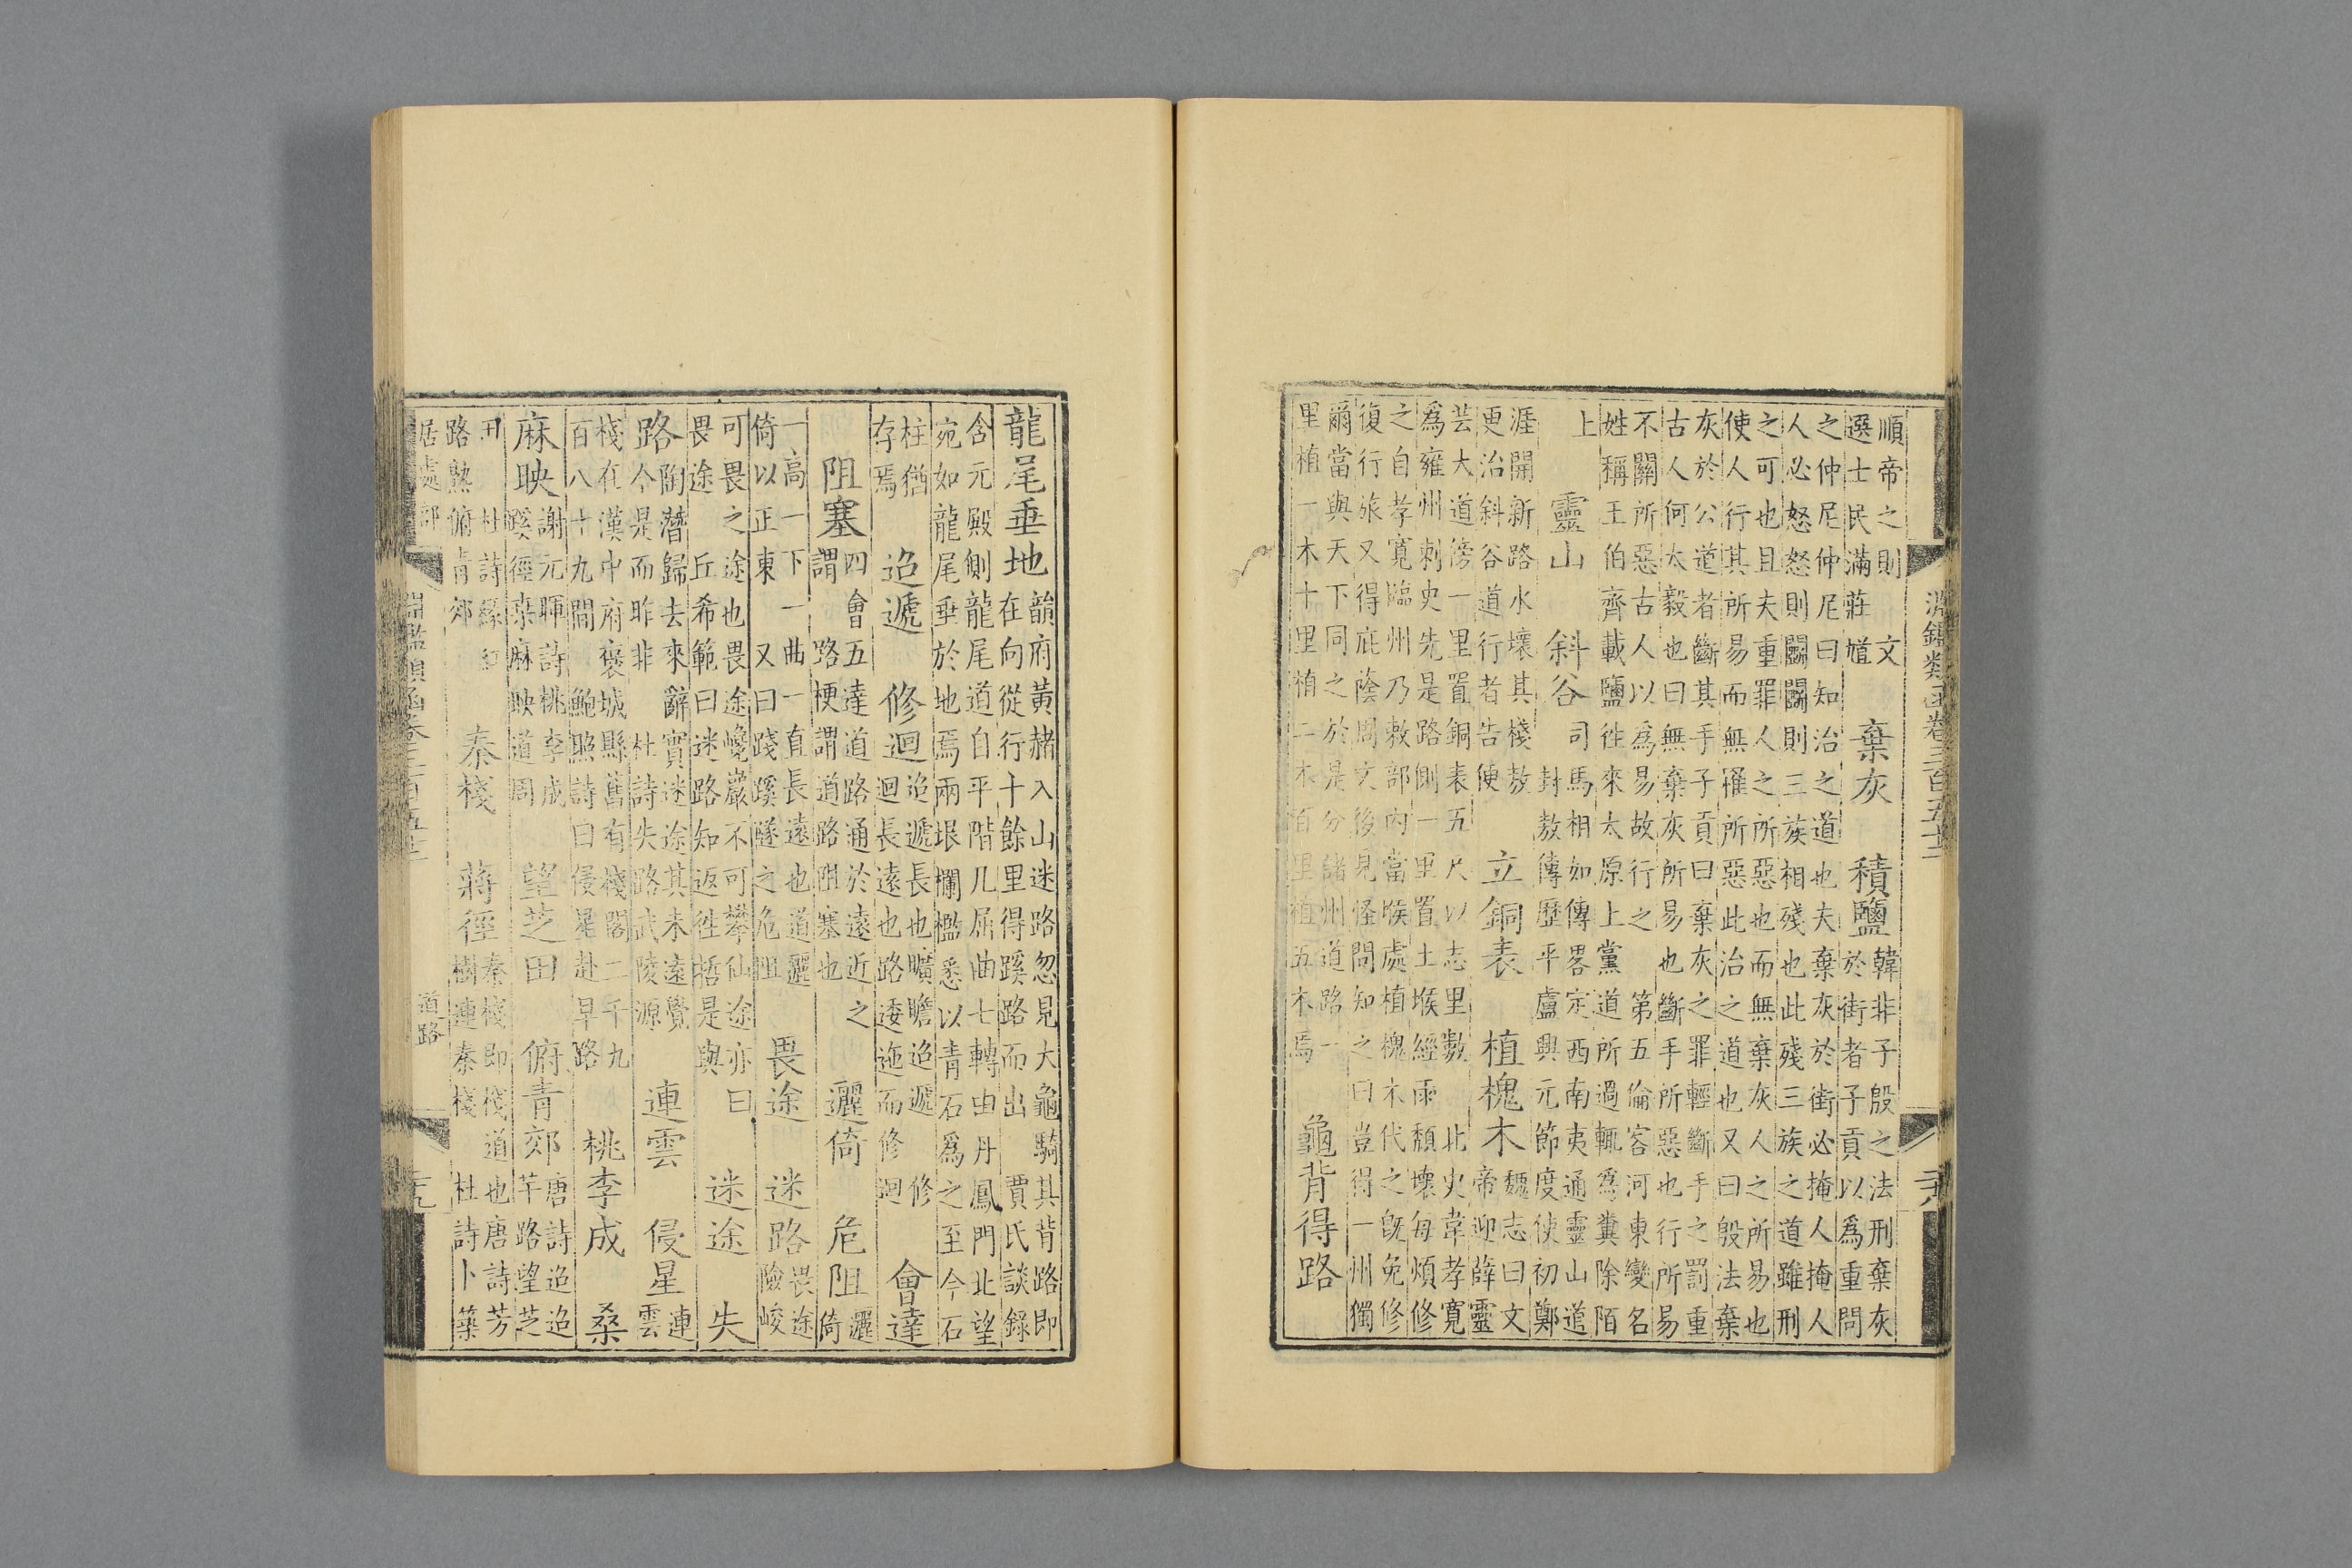 淵鑑類函卷三百五十二 二十八
順帝之則 文
選士民滿莊馗
棄灰 積鹽
韓非子殷之法刑棄灰
於街者子貢以爲重問
之仲尼仲尼曰知治之道也夫棄灰於街必掩人掩人
人必怒怒則鬬鬬則三族相殘也此殘三族之道雖刑
之可也且夫重罪人之所惡也而無棄灰人之所易也
使人行其所易而無罹所惡此治之道也又曰殷法棄
灰於公道者斷其手子貢曰棄灰之罪輕斷手之罰重
古人何太毅也曰無棄灰所易也斷手所惡也行所易
不關所惡古人以爲易故行之 第五倫客河東變名
姓稱王伯齊載鹽徃來太原上黨道所過輒爲糞除陌
上
靈山 斜谷
司馬相如傳畧定西南夷通靈山道
封敖傳歷平盧興元節度使初鄭
涯開新路水壞其棧敖
更治斜谷道行者告便
立銅表 植槐木
魏志曰文
帝迎薛靈
芸大道傍一里置銅表五尺以志里數 北史韋孝寬
爲雍州刺史先是路側一里置土堠經雨頹壞每煩修
之自孝寬臨州乃敕部内當堠處植槐木代之旣免修
復行旅又得庇蔭周文後見怪問知之曰豈得一州獨
爾當與天下同之於是分諸州道路一
里植一木十里植二木百里植五木焉
龜背得路
龍尾垂地
韻府黃赭入山迷路忽見大龜騎其背路即
在向從行十餘里得蹊路而出 賈氏談錄
含元殿側龍尾道自平階几屈曲七轉由丹鳳門北望
宛如龍尾垂於地焉兩垠欄檻悉以青石爲之至今石
柱猶
存焉
迢遞 修迴
迢遞長也曠瞻迢遞 修
迴長遠也路逶迤而修迴
會達
阻塞
四會五達道路通於遠近之
謂 路梗謂道路阻塞也
邐倚 危阻
邐
倚
一高一下一曲一直長遠也道邐
倚以正東 又曰踐蹊隧之危阻
畏途 迷路
畏途
險峻
可畏之途也畏途巉巖不可攀仙途亦曰
畏途 丘希範曰迷路知返徃哲是與
迷途 失
路
陶潛歸去來辭實迷途其未遠覺
今是而昨非 杜詩失路武陵源
連雲 侵星
連
雲
棧在漢中府褒城縣舊有棧閣二千九
百八十九間 鮑照詩曰侵星赴早路
桃李成 桑
麻映
謝元暉詩桃李成
蹊徑桑麻映道周
望芝田 俯青郊
唐詩迢迢
芊路望芝
田 杜詩緣江
路熟俯青郊
秦棧 蔣徑
秦棧即棧道也唐詩芳
樹連秦棧 杜詩卜築
居處部 淵鑑類函卷三百五十二 道路 二十九